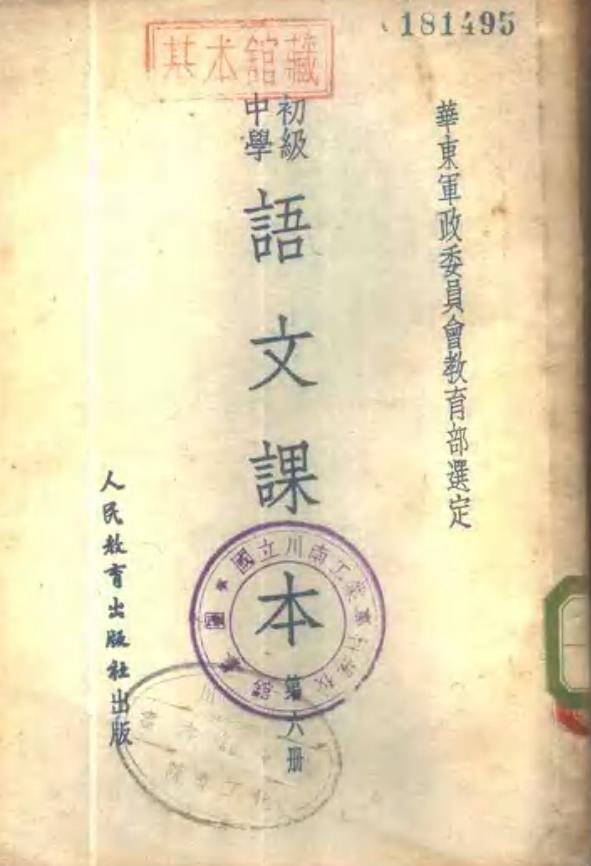 181495
藏館本基
華東軍政委員會教育部選定
初級
中學
語文課本
第六册
人民教育出版社出版
國立川南工業專科學校
圖
館